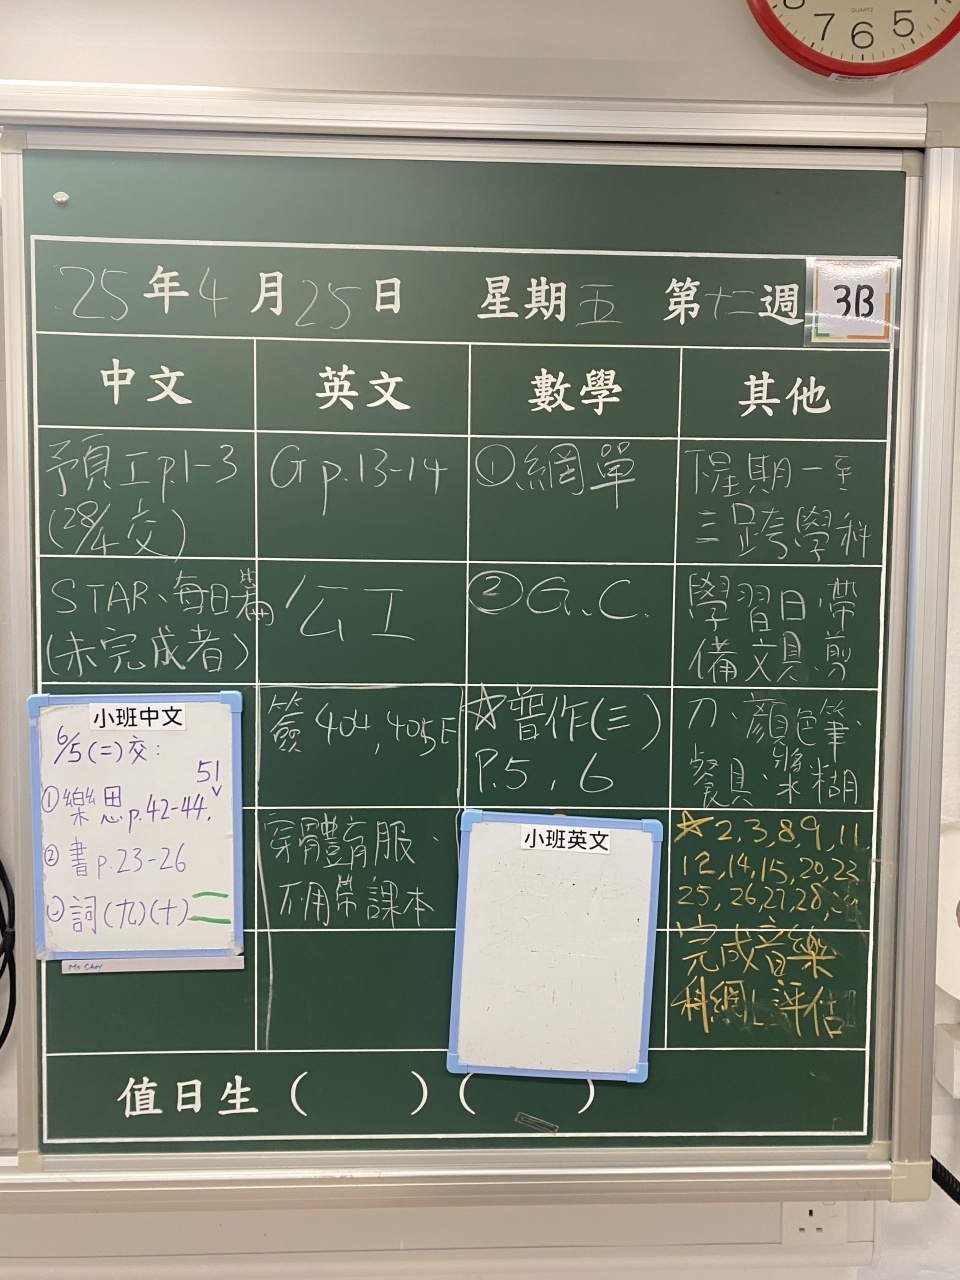 QUARTZ
7 6 5
25年4月25日 星期五 第十二週 3B
中文
英文
數學
其他
預工p.1-3
(28/4交)
STAR、每日篇
(未完成者)
小班中文
6/5(二)交:
51
①樂思p.42-44,
②書p.23-26
③詞(九)(十)
G p.13-14
公工
簽404,405E
穿體育服、
不用帶課本
①網單
②G.C.
☆普作(三)
P.5,6
小班英文
下星期一至
三跨學科
學習日,帶
備文具、剪
刀、顏色筆、
餐具、漿糊
☆2,3,8,9,11
12,14,15,20,22
25,26,27,28,
完成音樂
科網上評估
值日生( )( )